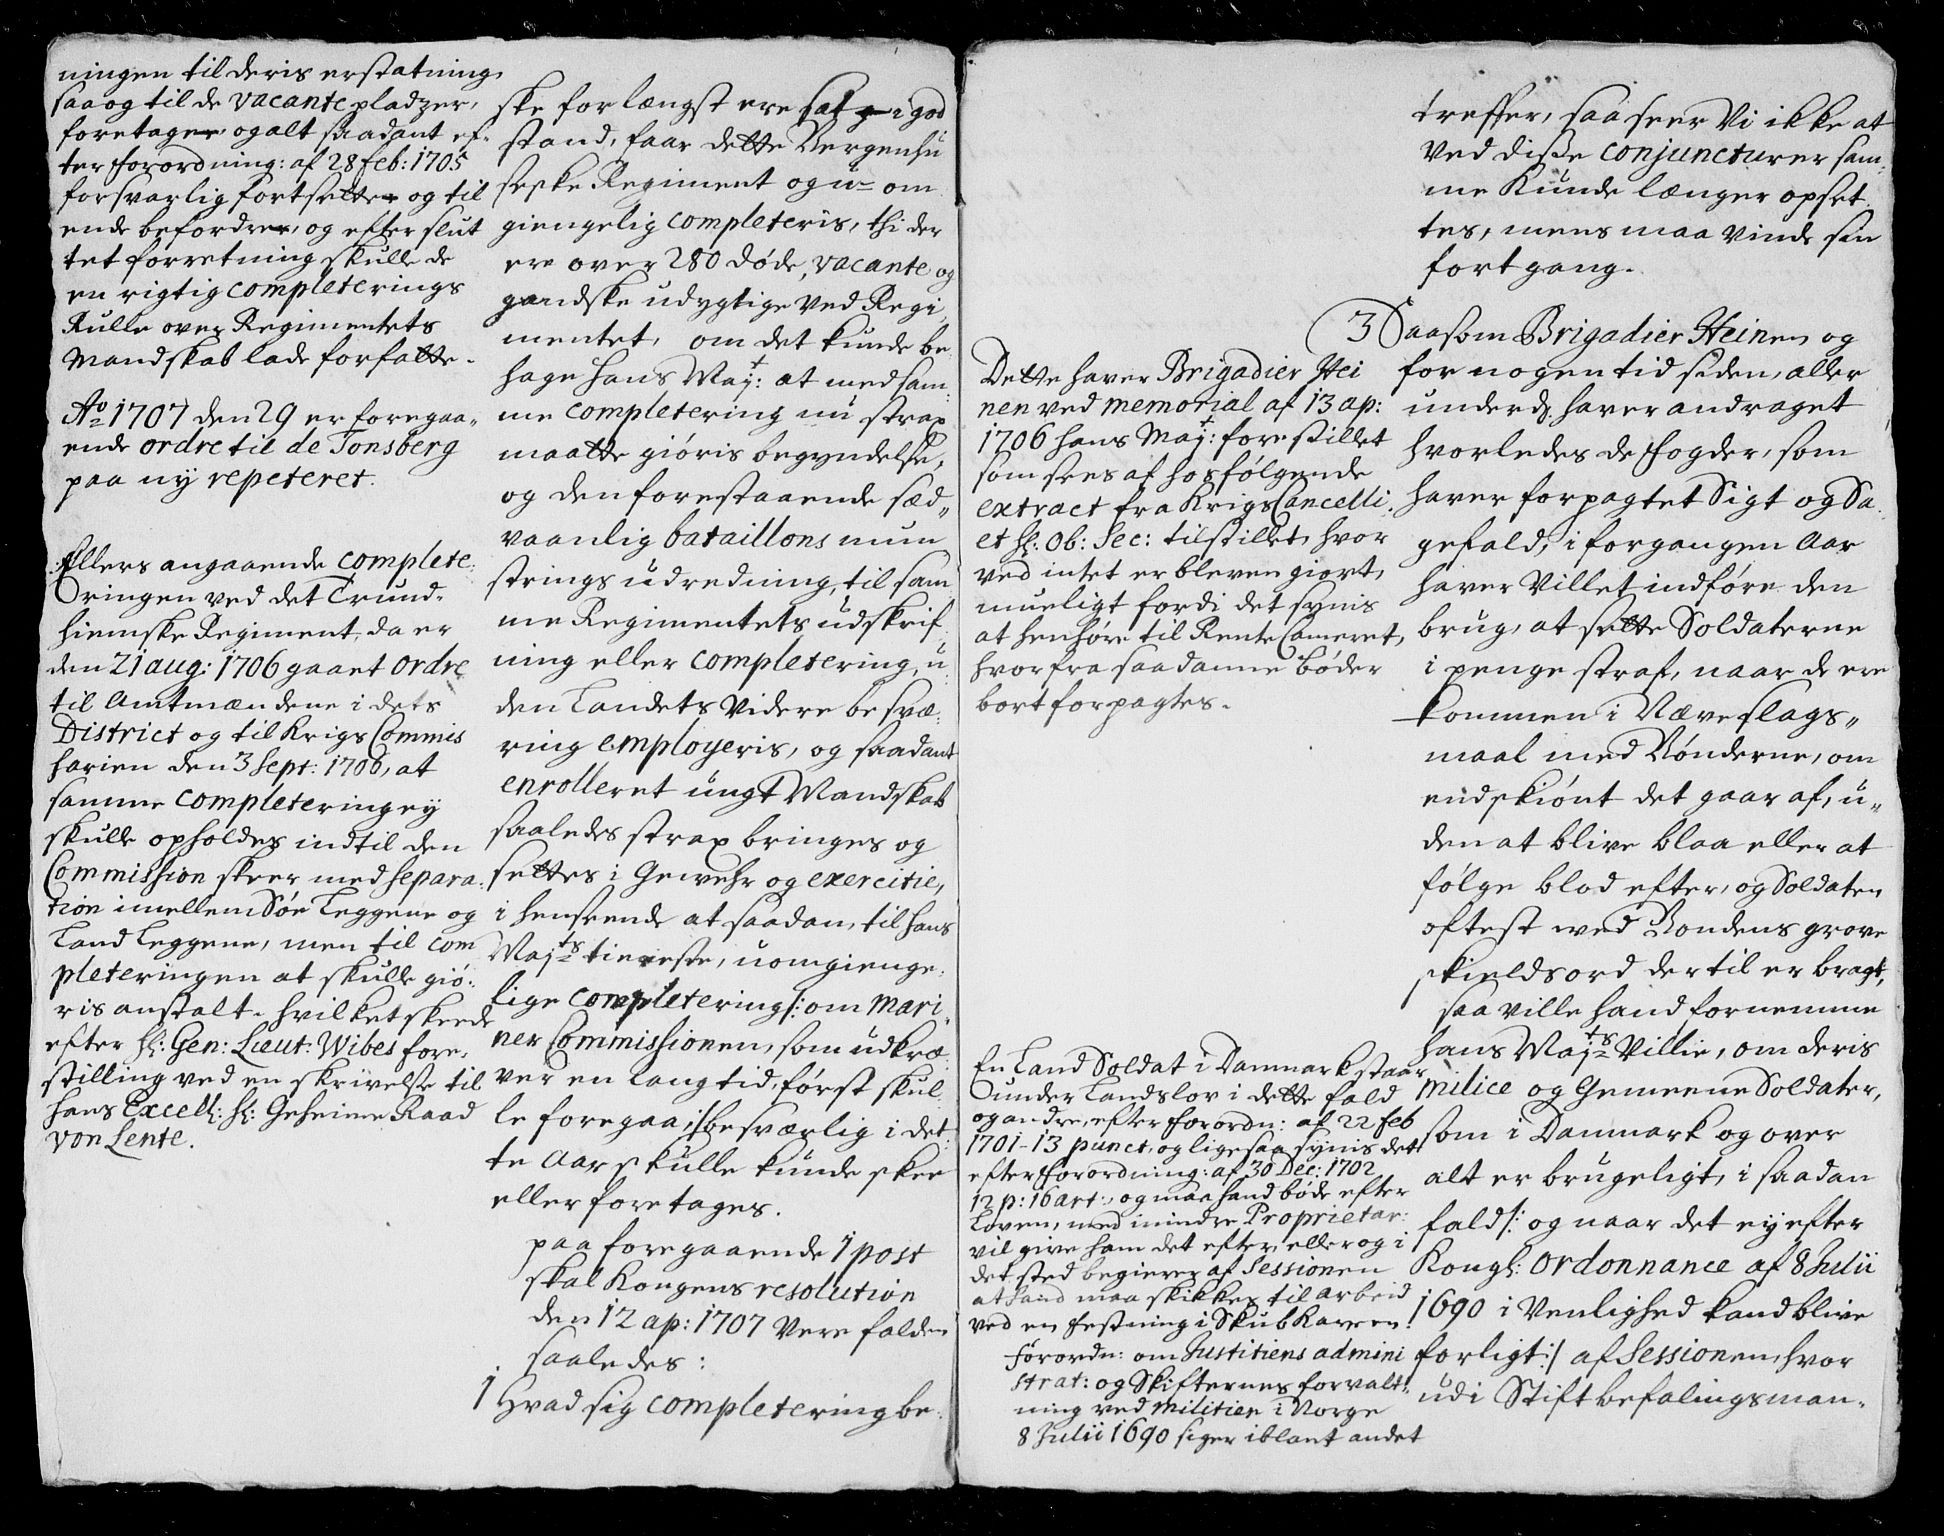 ningen til deris erstatning,
saa og til de vacante pladzer,
foretager, og alt saadant ef-
ter forordning: af 28 feb: 1705
forsvarlig fortsetter og til
ende befordrer, og efter slut
tet forretning skulle de
en rigtig completerings
Rulle over Regimentets
Mandskab lade forfatte.
Ao 1707 den 29 er foregaa-
ende ordre til de Tonsberg
paa ny repeteret.
Ellers angaaende complete-
ringen ved det Trund-
hiemske Regiment, da er
den 21 aug: 1706 gaaet ordre
til Amtmændene i dets
District og til Krigs Commis
sarien den 3 Sept: 1706, at
samme completering ey
skulle opholdes indtil den
Commission skeer med separa-
tion imellem Søe Leggene og
Land Leggene, men til com
pleteringen at skulle giø-
ris anstalt. hvilket skeede
efter hl: Gen: Lieut: Wibes fore-
stilling ved en skrivelse til
hans Excell: hl: Geheime Raad
von Lente.
ske for længst ere sat i god
stand, faar dette Bergenhu
seske Regiment og u= om
giengelig completeris, thi der
ere over 280 døde, vacante og
gandske udygtige ved Regi
mentet, om det kunde be
hage hans Mayt: at med sam
me completering nu strax
maatte giøris begyndelse,
og den forestaaende sæd-
vaanlig bataillons mun
strings udredning, til sam
me Regimentets udskrif
ning eller completering, u
den Landets videre besvæ-
ring employeris, og saadant
enrolleret ungt Mandskab
saaledes strax bringes og
settes i Gewehr og exercitie,
i henseende at saadan, til hans
Majts tieneste, uomgienge-
lige completering /: om Mari-
ner Commissionen, som udkræ
ver en lang tid, først skul
le foregaa :/ besværlig i det
te Aar skulle kunde skee
eller foretages.
paa foregaaende 1 post
skal Kongens resolution
den 12 ap: 1707 vere falden
saaledes:
1 Hvad sig completering be-
treffer, saa seer Vi ikke at
ved disse conjuncturer sam-
me kunde længer opset
tes, mens maa vinde sin
fortgang.
3 Saasom Brigadier Heinen og
for nogen tid siden, aller
underd: haver andraget
hvorledes de Fogder, som
haver forpagtet Sigt og Sa-
gefald, i forgangen Aar
haver villet indføre den
brug, at sette Soldaterne
i penge straf, naar de ere
kommen i Næve slags-
maal med Bønderne, om
endskiønt det gaar af, u-
den at blive blaa eller at
følge blod efter, og Soldaten
oftest med Bondens grove
skieldsord dertil er bragt,
saa ville hand fornemme
hans Majts Villie, om deris
milice og Gemeene Soldater,
som i Danmark og over
alt er brugeligt, i saadan
fald /: og naar det ey efter
Kongl: Ordonnance af 8 Julii
1690 i Venlighed kand blive
forligt :/ af Sessionen, hvor
udi Stiftbefalingsman-
Dette haver Brigadier Hei
nen ved memorial af 13 ap:
1706 hans Majt: forestillet
som sees af hosfølgende
extract fra Krigs Cancelli
et hl: Ob: Sec: tilstillet, hvor
ved intet er bleven giort,
mueligt fordi det synis
at henhøre til Rente Cameret,
hvorfra saadanne bøder
bort forpagtes.
En Land Soldat i Danmark staar
under Landslov i dette fald
og andre, efter forordn: af 22 feb
1701 - 13 punct, og ligesaa synis det
efter forordning: af 30 Dec: 1702
12 p: 16 art:, og maa hand bøde efter
Loven, med mindre Proprietar:
vil give ham det efter, eller og i
det sted begierer af Sessionen
at hand maa skikkes til arbeid
ved en festning i Skubkarren
forordn: om Justitiens admini
strat: og Skifternes forvalt-
ning ved militien i Norge
8 Julii 1690 siger iblant andet